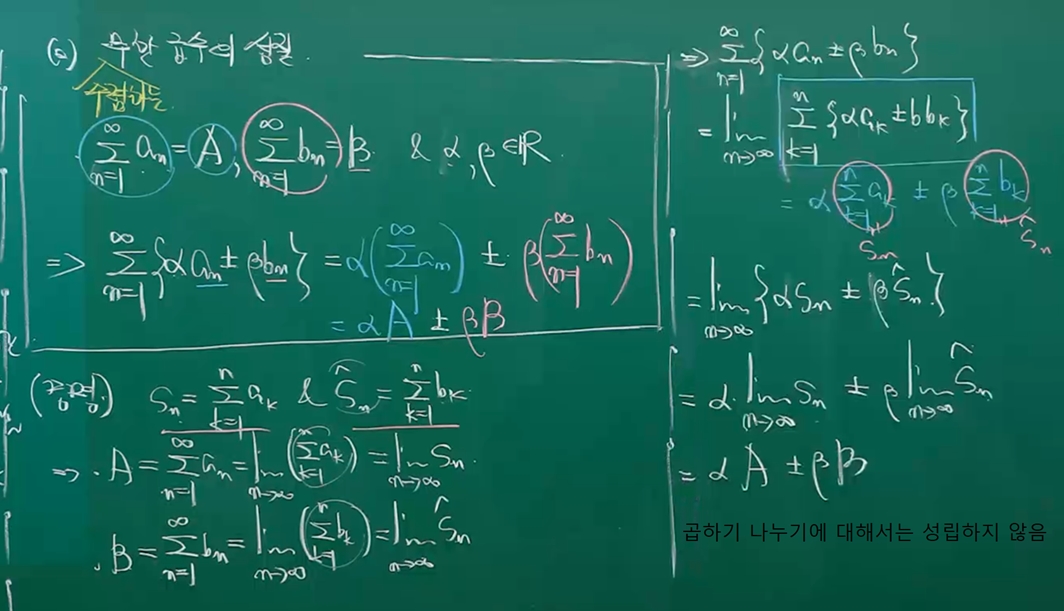 (2) 무한 급수의 성질
수렴하는
∞∑n=1 aₙ = A, ∞∑n=1 bₙ = B & α, β ∈ ℝ.
⇒ ∞∑n=1 {αaₙ ± βbₙ} = α(∞∑n=1 aₙ) ± β(∞∑n=1 bₙ)
= αA ± βB
(증명) Sₙ = n∑k=1 aₖ & Ŝₙ = n∑k=1 bₖ
⇒ . A = ∞∑n=1 aₙ = lim n→∞ (n∑k=1 aₖ) = lim n→∞ Sₙ.
. B = ∞∑n=1 bₙ = lim n→∞ (n∑k=1 bₖ) = lim n→∞ Ŝₙ
⇒ ∞∑n=1 {αaₙ ± βbₙ}
= lim n→∞ n∑k=1 {αaₖ ± bbₖ}
= α n∑k=1 aₖ ± β n∑k=1 bₖ
Sₙ Ŝₙ
= lim n→∞ {αSₙ ± βŜₙ}
= α lim n→∞ Sₙ ± β lim n→∞ Ŝₙ
= αA ± βB
곱하기 나누기에 대해서는 성립하지 않음